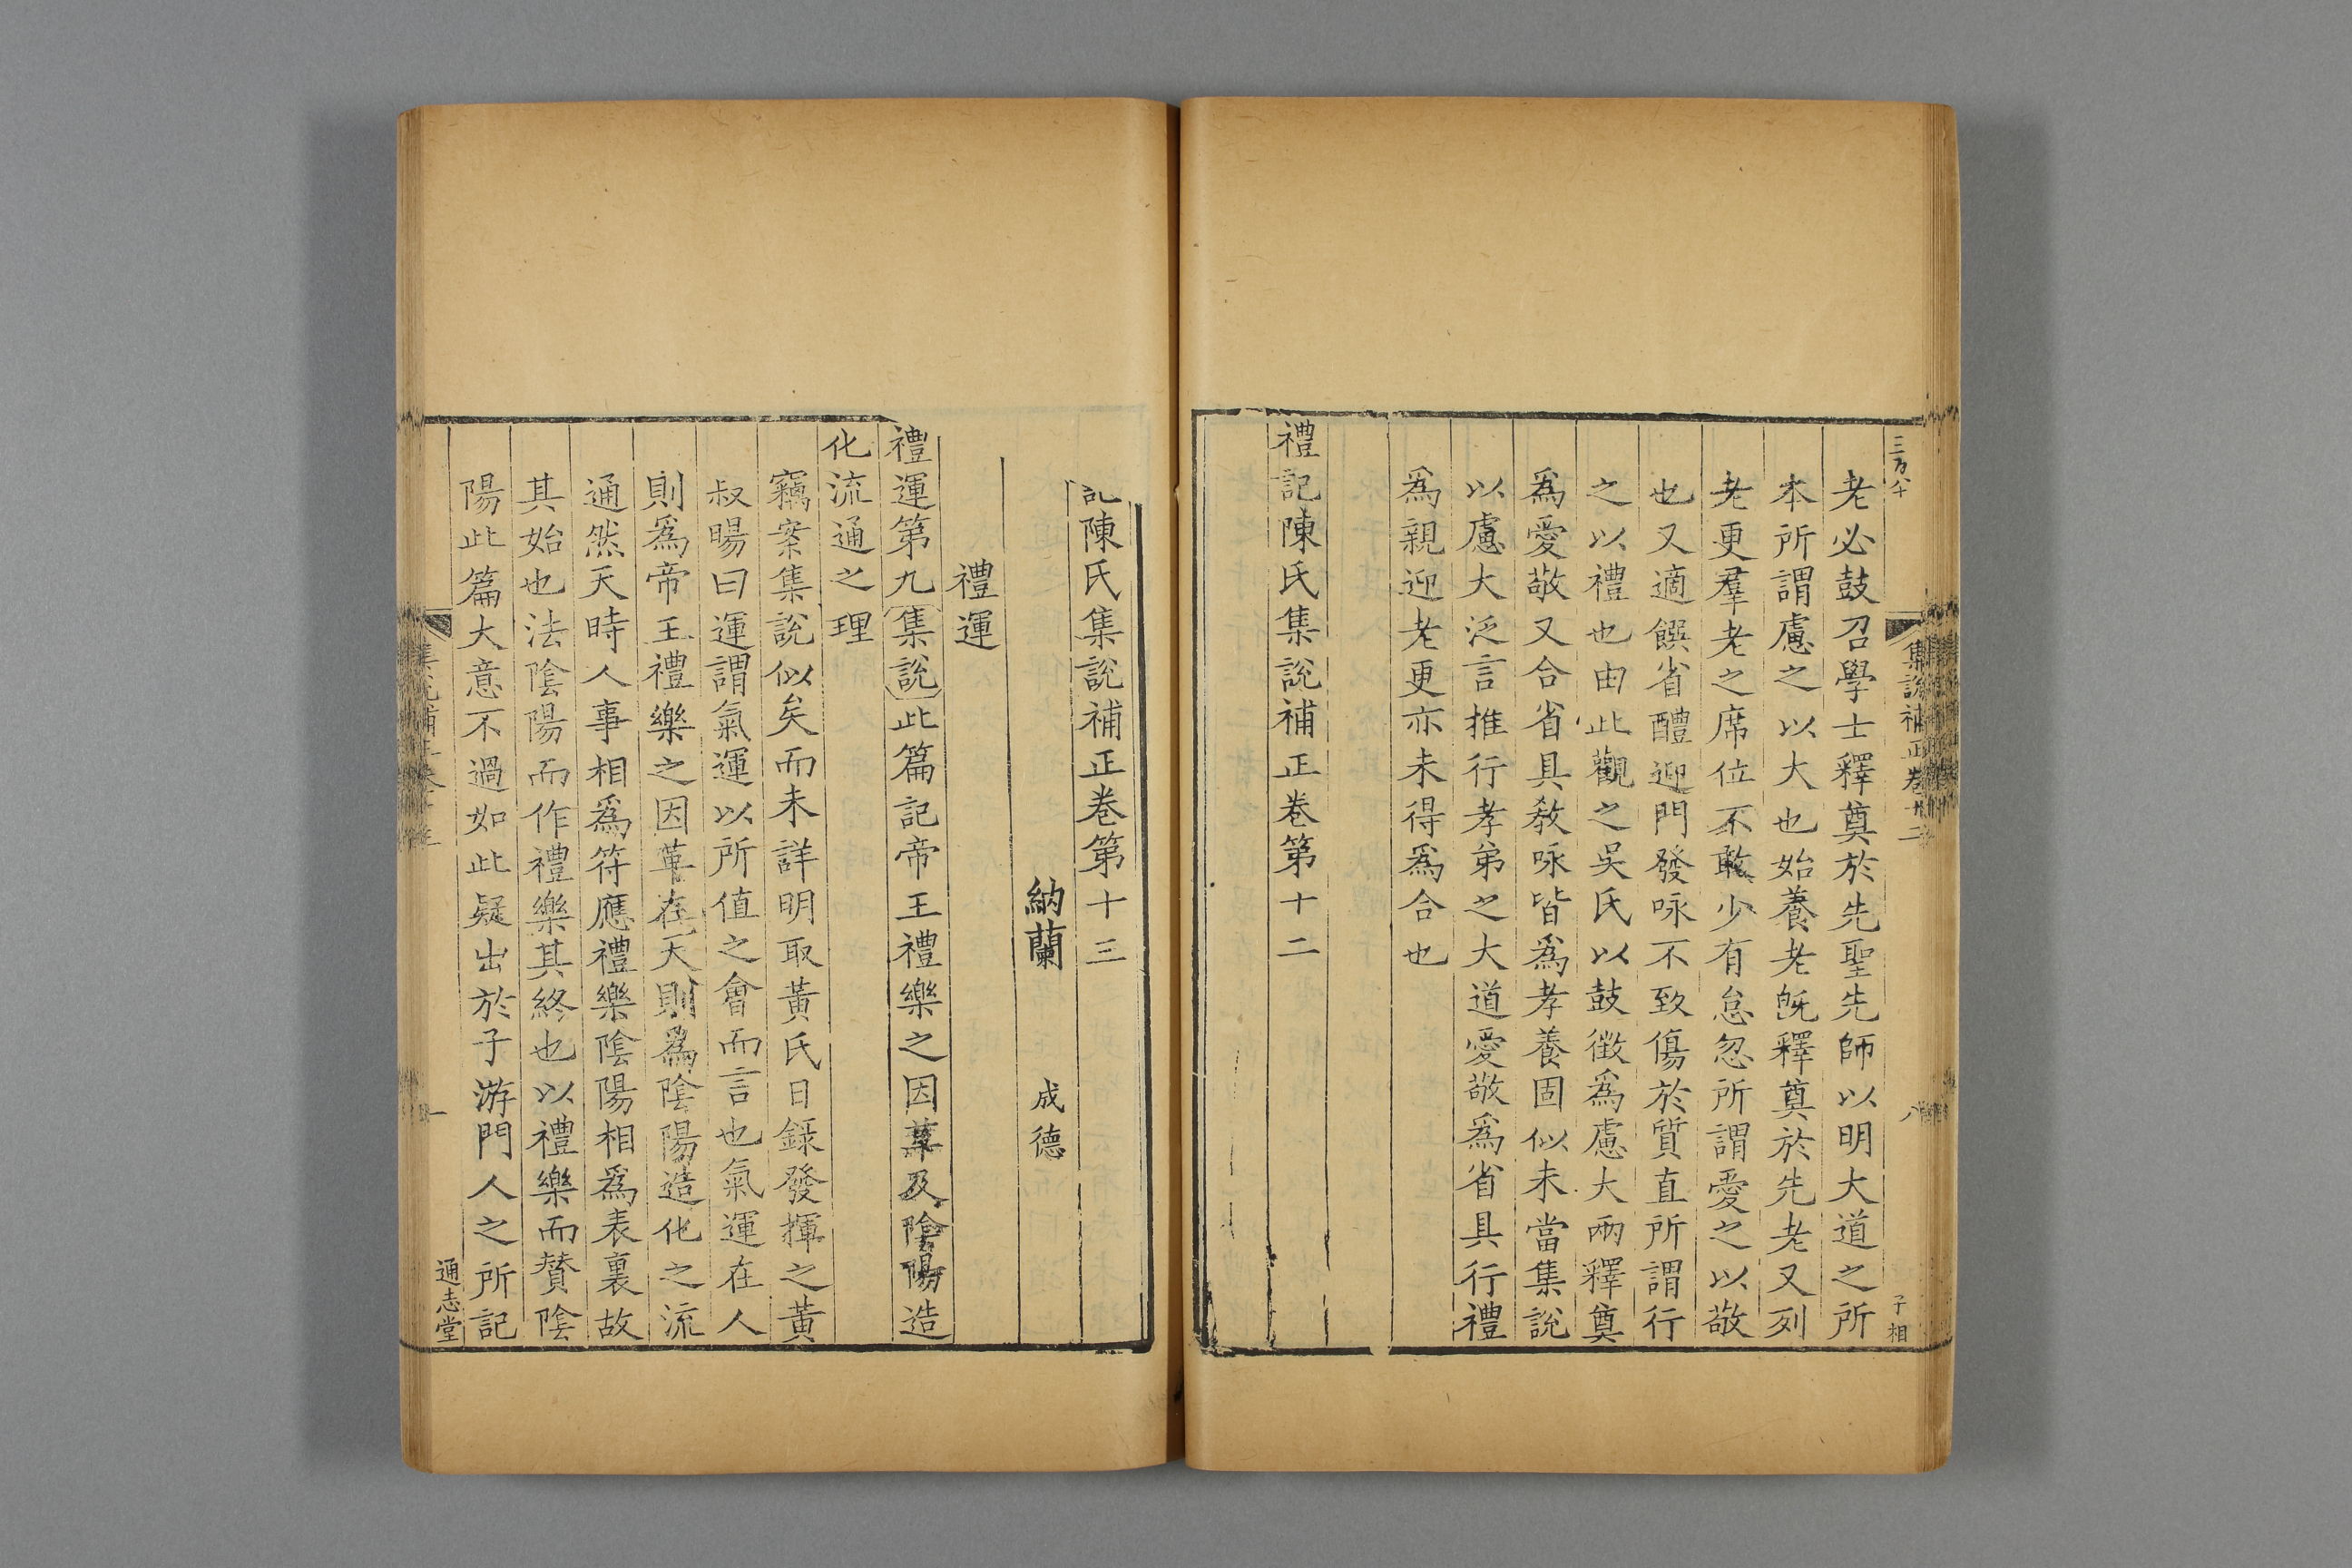 老必鼓召學士釋奠於先聖先師以明大道之所
本所謂慮之以大也始養老旣釋奠於先老又列
老更羣老之席位不敢少有怠忽所謂愛之以敬
也又適饌省醴迎門發咏不致傷於質直所謂行
之以禮也由此觀之吳氏以鼓徵爲慮大兩釋奠
爲愛敬又合省具敎咏皆爲孝養固似未當集說
以慮大泛言推行孝弟之大道愛敬爲省具行禮
爲親迎老更亦未得爲合也
禮記陳氏集說補正卷第十二
集說補正卷十二
八
子相
記陳氏集說補正卷第十三
納蘭 成德
禮運
禮運第九集說此篇記帝王禮樂之因革及陰陽造
化流通之理
竊案集說似矣而未詳明取黃氏日錄發揮之黃
叔暘曰運謂氣運以所值之會而言也氣運在人
則爲帝王禮樂之因革在天則爲陰陽造化之流
通然天時人事相爲符應禮樂陰陽相爲表裏故
其始也法陰陽而作禮樂其終也以禮樂而贊陰
陽此篇大意不過如此疑出於子游門人之所記
一
通志堂